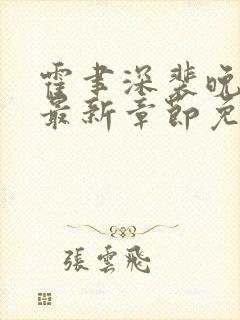 霍聿深裴晚
最新章節免
張雲飛